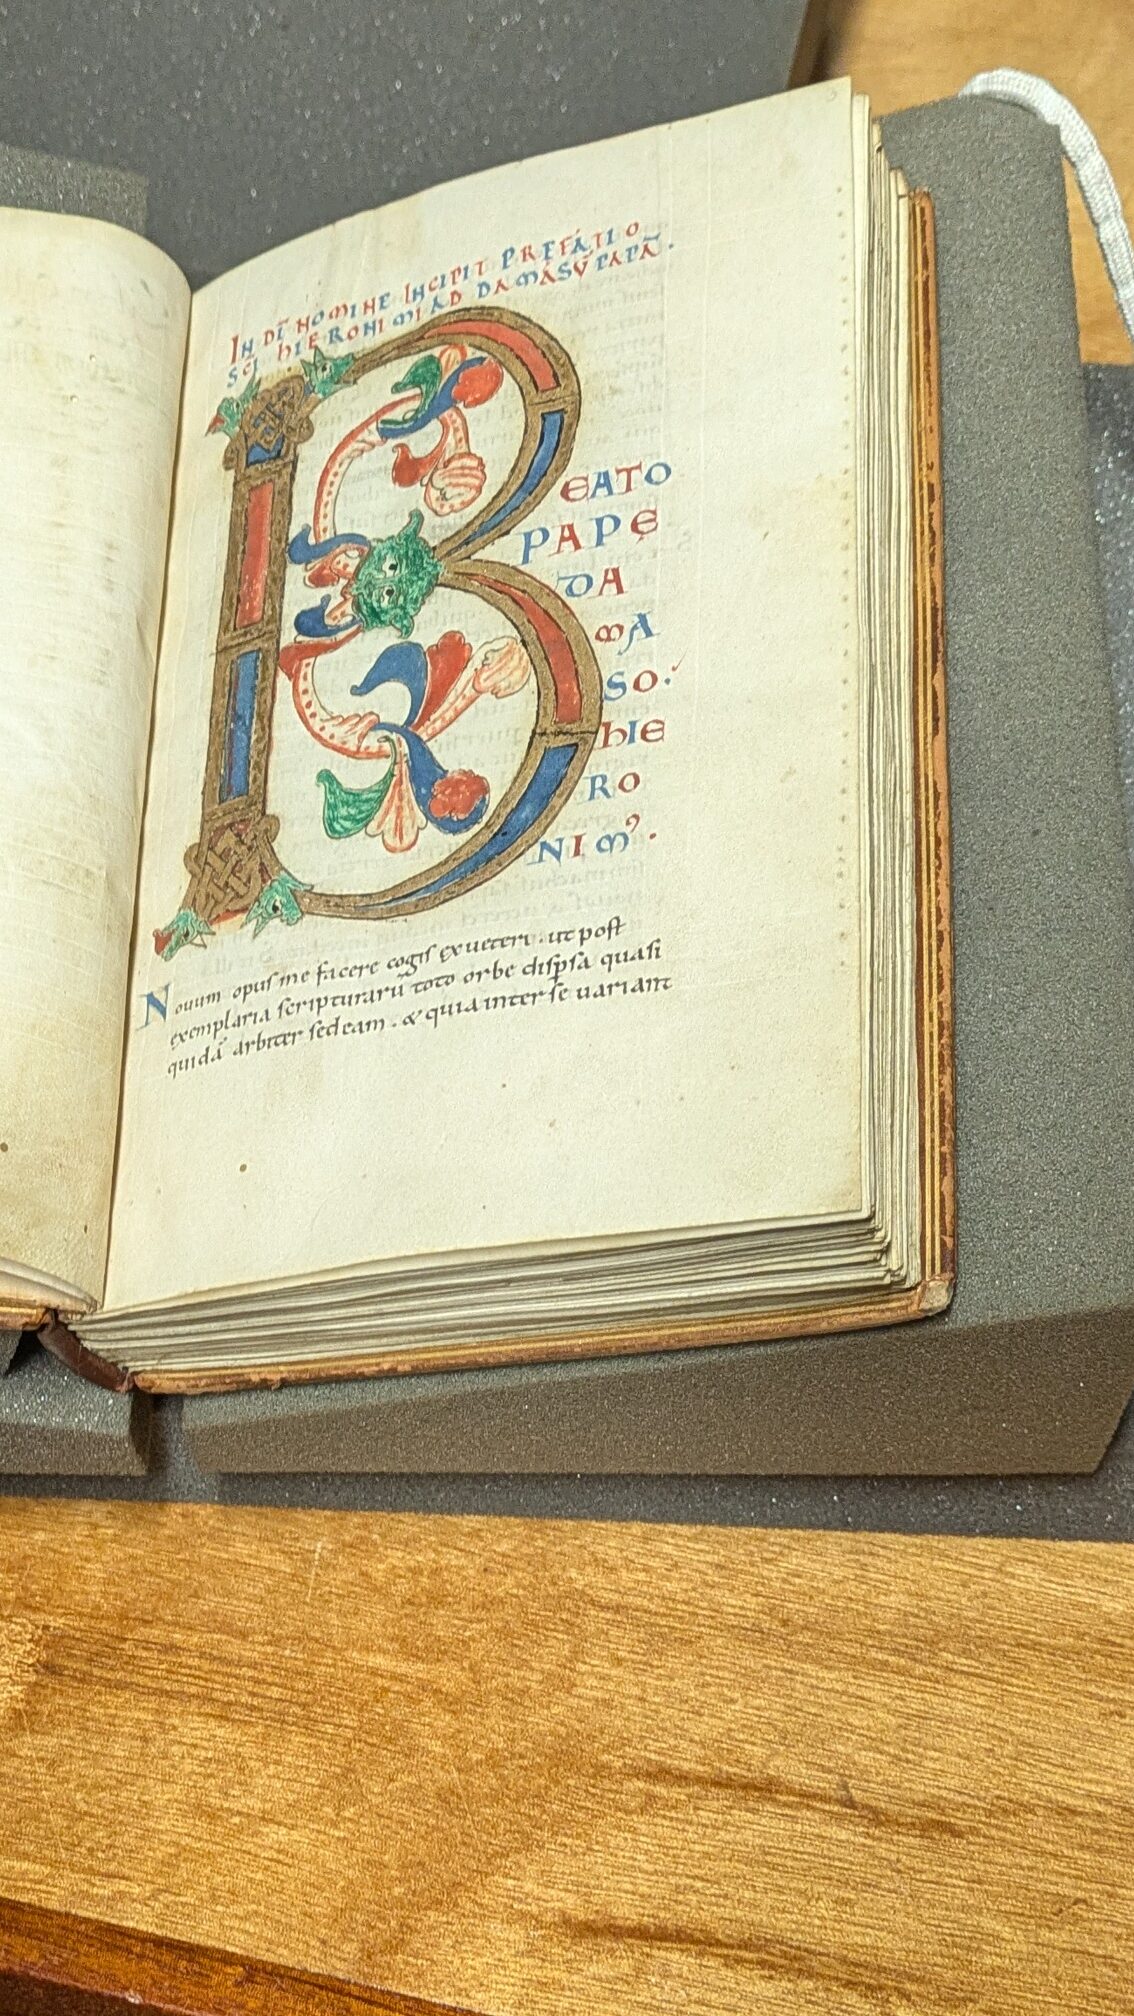 IN DĪ NOMINE INCIPIT PREFATIO
SCĪ HIERONIMI AD DAMASŪ PAPĀ.
B
EATO
PAPĘ
DA
MA
SO.
HIE
RO
NIMꝰ.
Nouum opus me facere cogis ex ueteri. ut post
exemplaria scripturarū toto orbe dispsa quasi
quidā arbiter sedeam. & quia inter se uariant